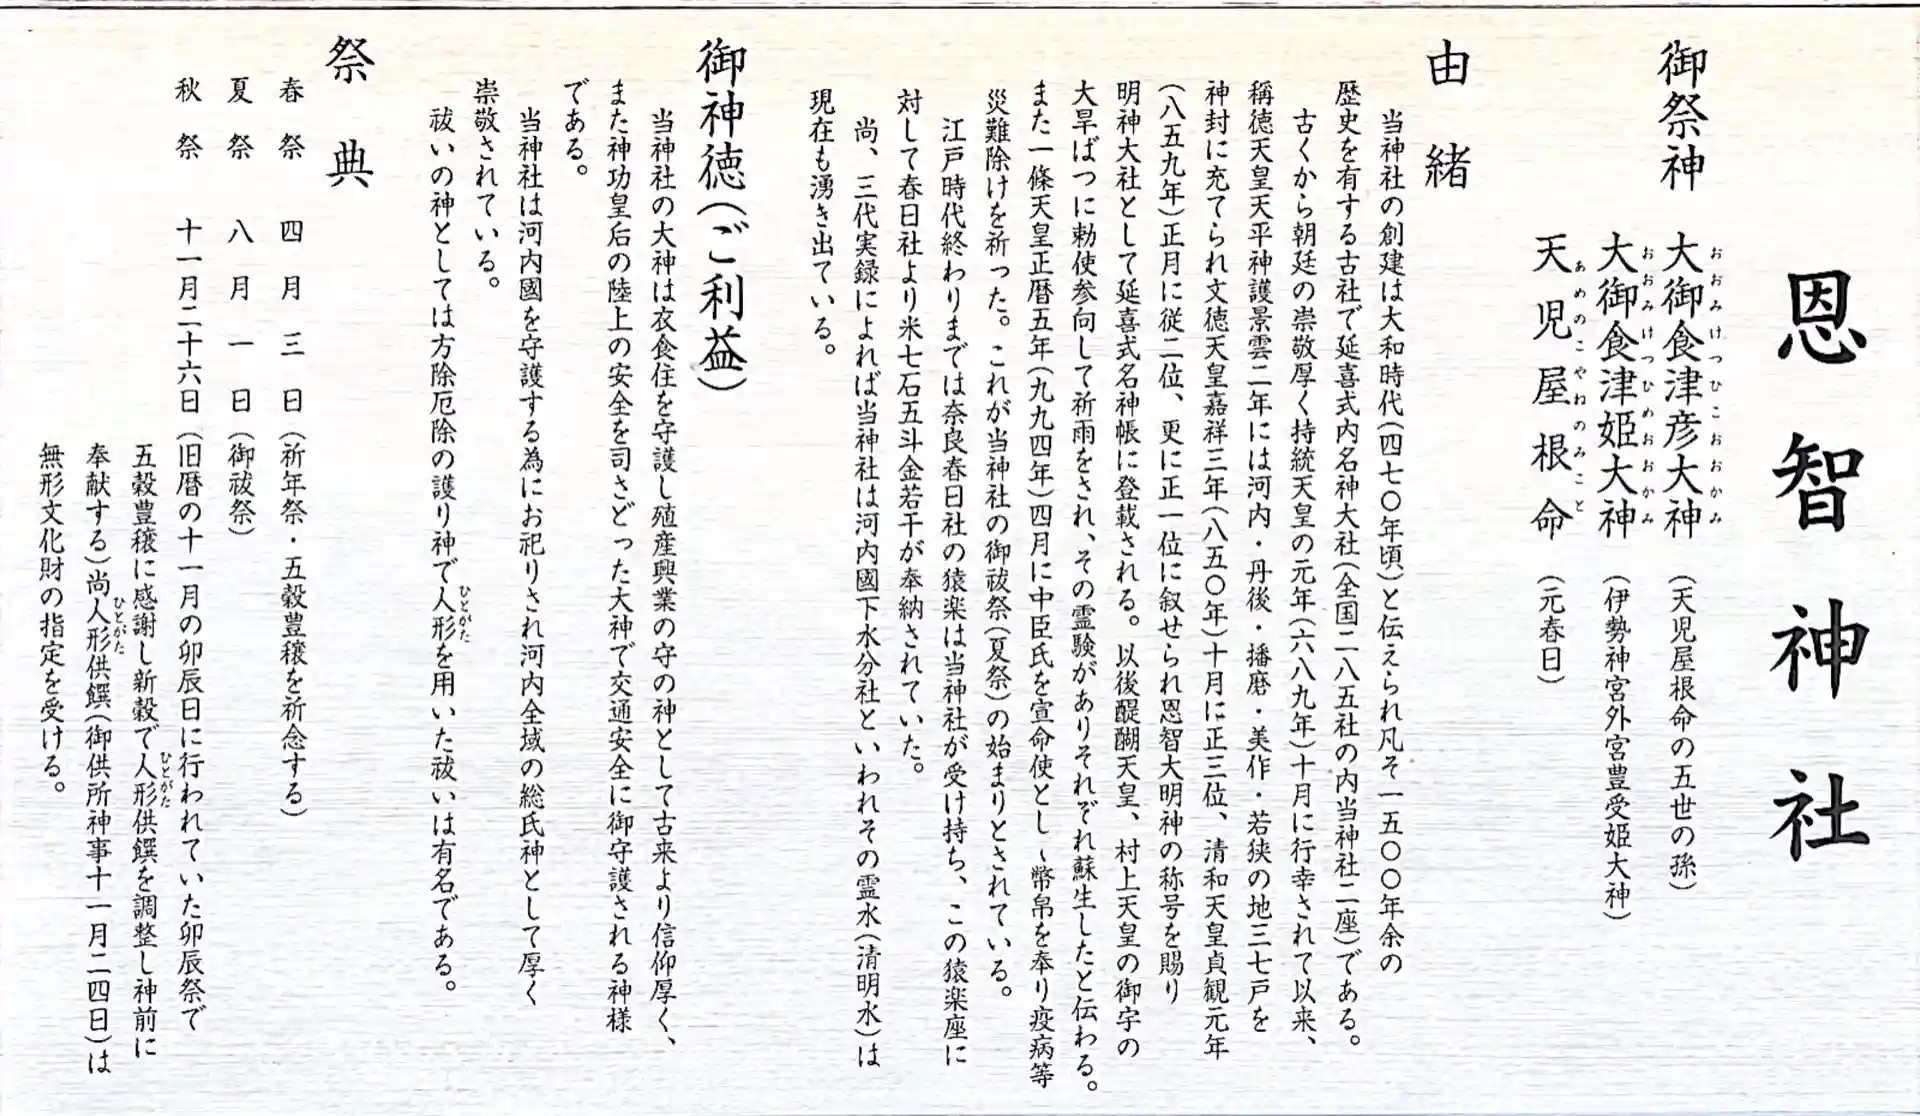 恩智神社
御祭神
大御食津彦大神(天児屋根命の五世の孫)
おおみけつひこおおかみ
大御食津姫大神(伊勢神宮外宮豊受姫大神)
おおみけつひめおおかみ
天児屋根命(元春日)
あめのこやねのみこと
由緒
当神社の創建は大和時代(四七〇年頃)と伝えられ凡そ一五〇〇年余の
歴史を有する古社で延喜式内名神大社(全国二八五社の内当神社二座)である。
古くから朝廷の崇敬厚く持統天皇の元年(六八九年)十月に行幸されて以来、
稱徳天皇天平神護景雲二年には河内・丹後・播磨・美作・若狭の地三七戸を
神封に充てられ文徳天皇嘉祥三年(八五〇年)十月に正三位、清和天皇貞観元年
(八五九年)正月に従二位、更に正一位に叙せられ恩智大明神の称号を賜り
明神大社として延喜式名神帳に登載される。以後醍醐天皇、村上天皇の御宇の
大旱ばつに勅使参向して祈雨をされ、その霊験がありそれぞれ蘇生したと伝わる。
また一條天皇正暦五年(九九四年)四月に中臣氏を宣命使とし、幣帛を奉り疫病等
災難除けを祈った。これが当神社の御祓祭(夏祭)の始まりとされている。
江戸時代終わりまでは奈良春日社の猿楽は当神社が受け持ち、この猿楽座に
対して春日社より米七石五斗金若干が奉納されていた。
尚、三代実録によれば当神社は河内國下水分社といわれその霊水(清明水)は
現在も湧き出ている。
御神徳(ご利益)
当神社の大神は衣食住を守護し殖産興業の守の神として古来より信仰厚く、
また神功皇后の陸上の安全を司さどった大神で交通安全に御守護される神様
である。
当神社は河内國を守護する為にお祀りされ河内全域の総氏神として厚く
崇敬されている。
祓いの神としては方除厄除の護り神で人形を用いた祓いは有名である。
ひとがた
祭典
春祭 四月三日(祈年祭・五穀豊穣を祈念する)
夏祭 八月一日(御祓祭)
秋祭 十一月二十六日(旧暦の十一月の卯辰日に行われていた卯辰祭で
五穀豊穣に感謝し新穀で人形供饌を調整し神前に
ひとがた
奉献する)尚人形供饌(御供所神事十一月二四日)は
ひとがた
無形文化財の指定を受ける。